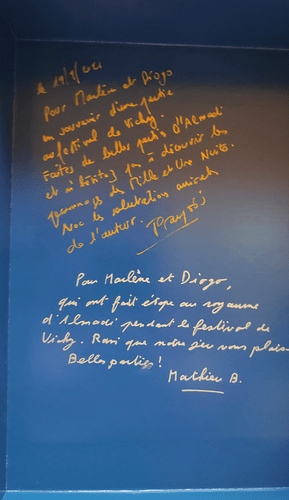 le 19/9/2021
Pour Marlène et Diogo
en souvenir d'une partie
au festival de Vichy.
Faites de belles parties d'Almadi
et n'hésitez pas à découvrir les
personnages des Mille et Une Nuits.
Avec les salutations amicales
de l'auteur.
Pour Marlène et Diogo,
qui ont fait étape au royaume
d'Almadi pendant le festival de
Vichy. Ravi que notre jeu vous plaise
Belles parties !
Mathieu B.